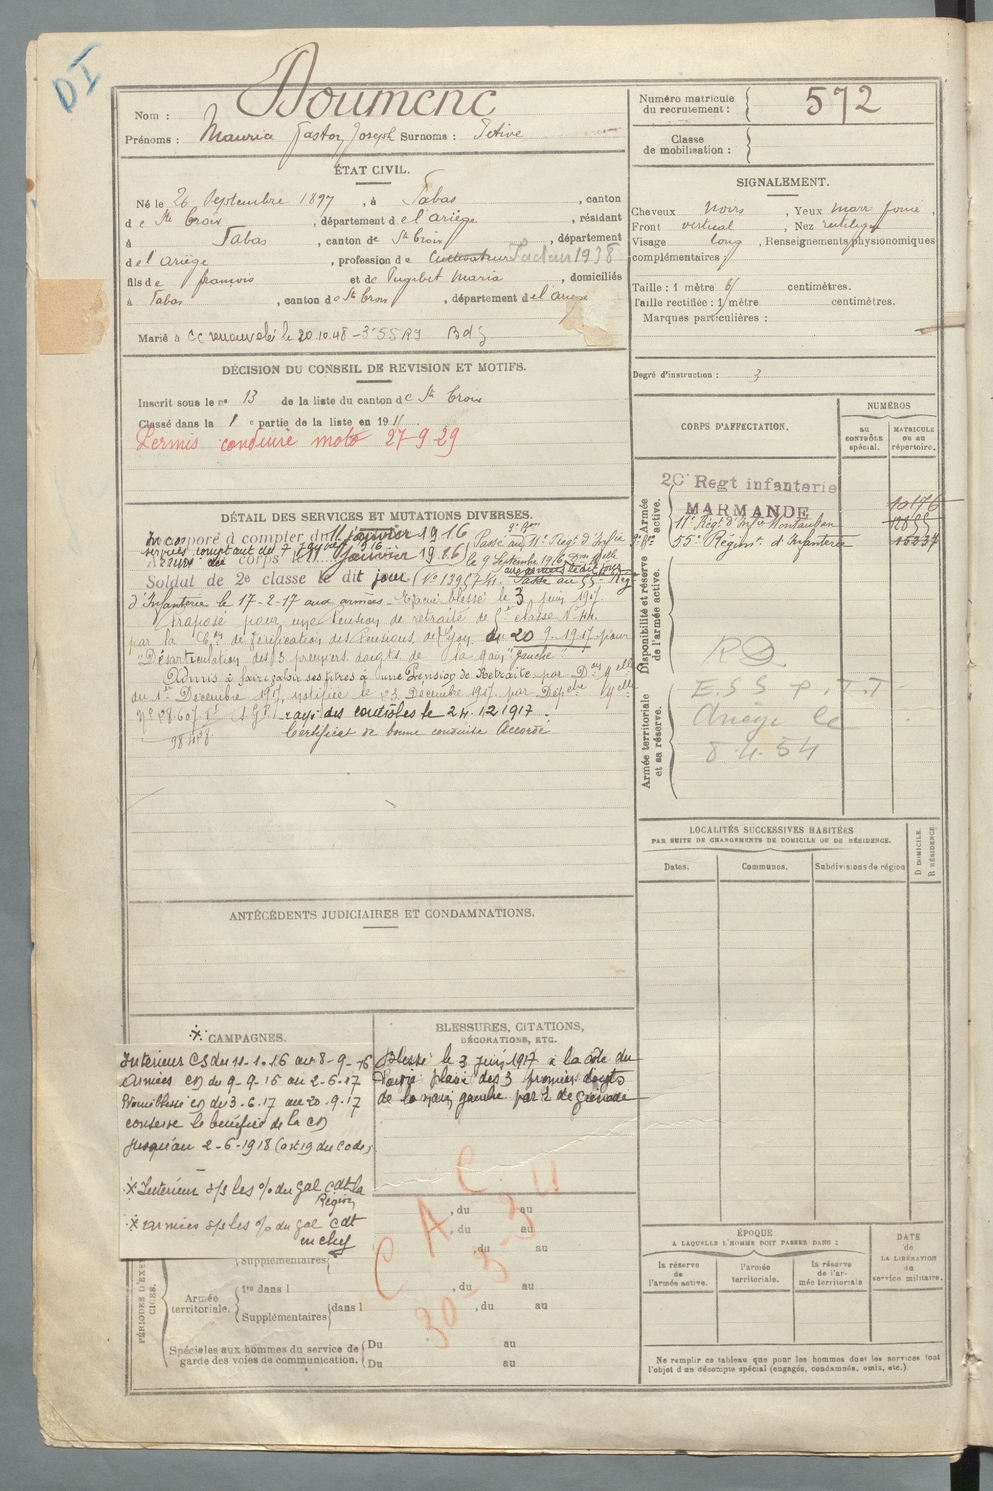 D I
Nom : Doumenc
Prénoms : Gaston Joseph Surnoms :
Numéro matricule
du recrutement : 572
Classe
de mobilisation :
ÉTAT CIVIL.
Né le 26 Septembre 1897, à Fabas, canton
de Ste Croix, département de l'ariège, résidant
à Fabas, canton de Ste Croix, département
de l'ariège, profession de Cultivateur Facteur 1938
fils de françois et de Pugibet Maria, domiciliés
à Fabas, canton de Ste Croix, département de l'ariège
Marié à CC renouvelée le 20.10.48
SIGNALEMENT.
Cheveux noirs, Yeux marr foncé,
Front vertical, Nez rectiligne
Visage long, Renseignements physionomiques
complémentaires :
Taille : 1 mètre 61 centimètres.
Taille rectifiée : 1 mètre centimètres.
Marques particulières :
Degré d'instruction : 3
DÉCISION DU CONSEIL DE REVISION ET MOTIFS.
Inscrit sous le no 13 de la liste du canton de Ste Croix
Classé dans la 1 e partie de la liste en 191
Permis conduire moto 27-9-29
CORPS D'AFFECTATION.
NUMÉROS
AU CONTRÔLE spécial.
MATRICULE OU AU répertoire.
Armée active.
20e Regt infanterie
MARMANDE
11e Régt d'Infie Montauban
55e Régiment d'Infanterie
Disponibilité et réserve de l'armée active.
Armée territoriale et sa réserve.
E.S.S P.T.T.
Ariège le
8.4.54
DÉTAIL DES SERVICES ET MUTATIONS DIVERSES.
Incorporé à compter du 11 janvier 1916
Passé au 11e Régt d'Infie
le 9 Septembre 1916
Soldat de 2e classe le dit jour
Passé au 55e Rég
d'Infanterie le 17-2-17 aux armées. Evacué blessé le 3 juin 1917.
Proposé pour une Pension de retraite de
par la de Vérification des Pensions de Lyon du 20-9-1917 pour
"Désarticulation des 3 premiers doigts de la main gauche"
Admis à faire valoir ses titres à une Pension de Retraite par
du 1er Décembre 1917, notifiée le 23 Décembre 1917 par
rayé des contrôles le 24.12.1917.
Certificat de bonne conduite Accordé
LOCALITÉS SUCCESSIVES HABITÉES
PAR SUITE DE CHANGEMENTS DE DOMICILE OU DE RÉSIDENCE.
Dates.
Communes.
Subdivisions de région
D DOMICILE.
R RÉSIDENCE.
ANTÉCÉDENTS JUDICIAIRES ET CONDAMNATIONS.
CAMPAGNES.
Intérieur CS du 11-1-16 au 8-9-16
Armées CD du 9-9-16 au 2-6-17
CD du 3-6-17 au 20-9-17
conserve le bénéfice de la CD
jusqu'au 2-6-1918 (art 19 du Code)
Intérieur s/s les o/o du gal cdt la
Région
armées s/s les o/o du gal cdt
en chef
BLESSURES, CITATIONS,
DÉCORATIONS, ETC.
Blessé le 3 juin 1917 à la côte du
plaie des 3 premiers doigts
de la main gauche par de grenade
, du au
, du au
, du au
Supplémentaires
PÉRIODES D'EXERCICES.
Armée
territoriale.
1re dans l , du au
Supplémentaires dans l , du au
Spéciales aux hommes du service de
garde des voies de communication.
Du au
Du au
ÉPOQUE
A LAQUELLE L'HOMME DOIT PASSER DANS :
la réserve
de
l'armée active.
l'armée
territoriale.
la réserve
de l'ar-
mée territoriale
DATE
de
LA LIBÉRATION
du
service militaire.
Ne remplir ce tableau que pour les hommes dont les services font
l'objet d'un décompte spécial (engagés, condamnés, omis, etc.).